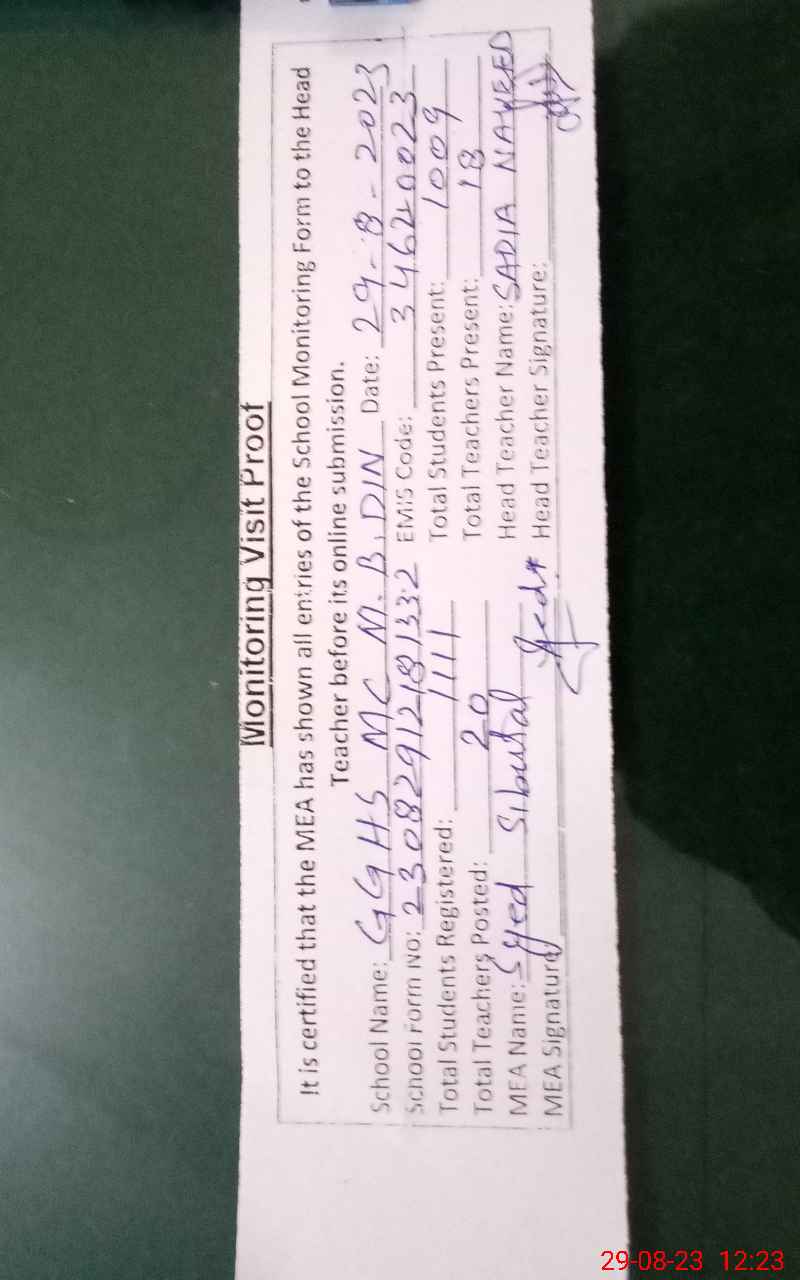 Monitoring Visit Proof
It is certified that the MEA has shown all entries of the School Monitoring Form to the Head
Teacher before its online submission.
School Name: GGHS MC M.B.DIN Date: 29-8-2023
School Form No: 23082912181332 EMIS Code: 34620023
Total Students Registered: 1111 Total Students Present: 1009
Total Teachers Posted: 20 Total Teachers Present: 18
MEA Name: Syed Head Teacher Name: SADIA NAVEED
MEA Signature Head Teacher Signature:
29-08-23 12:23